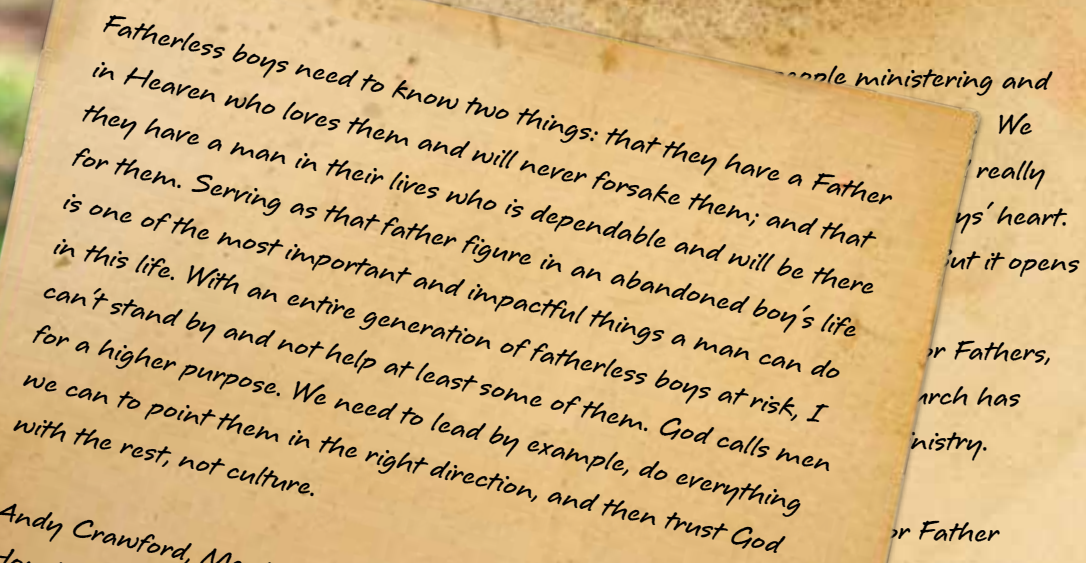 Fatherless boys need to know two things: that they have a Father
in Heaven who loves them and will never forsake them; and that
they have a man in their lives who is dependable and will be there
for them. Serving as that father figure in an abandoned boy's life
is one of the most important and impactful things a man can do
in this life. With an entire generation of fatherless boys at risk, I
can't stand by and not help at least some of them. God calls men
for a higher purpose. We need to lead by example, do everything
we can to point them in the right direction, and then trust God
with the rest, not culture.
Andy Crawford,
ministering and
We
really
heart.
it opens
Fathers,
has
Father